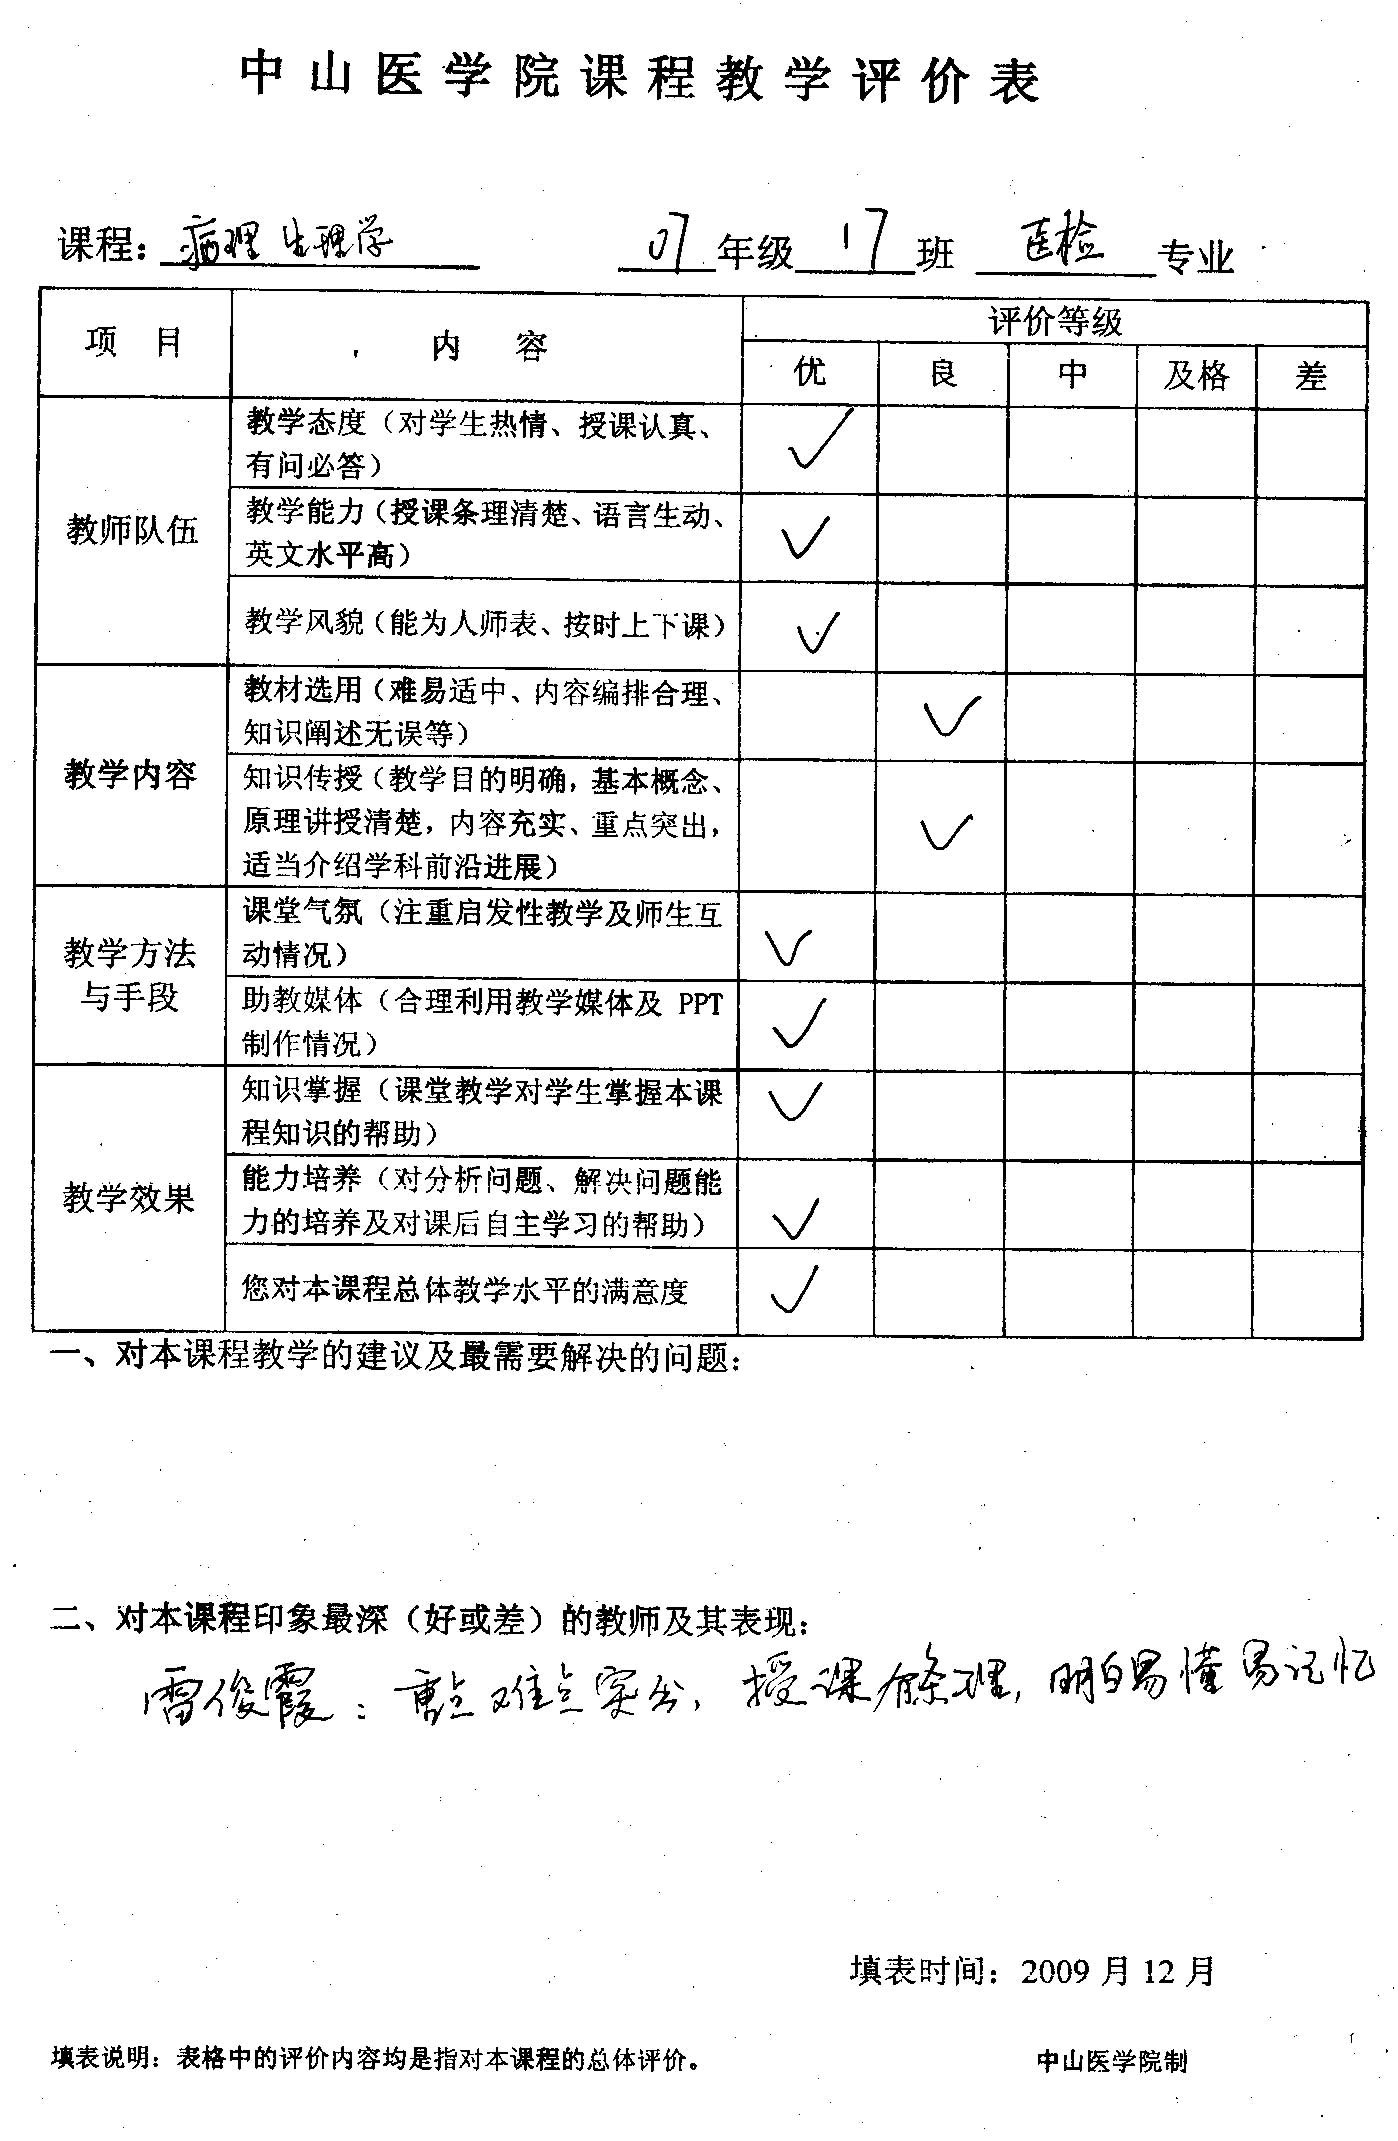 中山医学院课程教学评价表
课程：病理生理学 07年级17班 医检 专业
项 目 内 容 评价等级
优 良 中 及格 差
教师队伍
教学态度（对学生热情、授课认真、
有问必答） ✓
教学能力（授课条理清楚、语言生动、
英文水平高） ✓
教学风貌（能为人师表、按时上下课） ✓
教学内容
教材选用（难易适中、内容编排合理、
知识阐述无误等） ✓
知识传授（教学目的明确，基本概念、
原理讲授清楚，内容充实、重点突出，
适当介绍学科前沿进展） ✓
教学方法
与手段
课堂气氛（注重启发性教学及师生互
动情况） ✓
助教媒体（合理利用教学媒体及 PPT
制作情况） ✓
教学效果
知识掌握（课堂教学对学生掌握本课
程知识的帮助） ✓
能力培养（对分析问题、解决问题能
力的培养及对课后自主学习的帮助） ✓
您对本课程总体教学水平的满意度 ✓
一、对本课程教学的建议及最需要解决的问题：
二、对本课程印象最深（好或差）的教师及其表现：
雷俊霞：重点难点突出，授课有条理，明白易懂易记忆
填表时间：2009 月 12 月
填表说明：表格中的评价内容均是指对本课程的总体评价。 中山医学院制